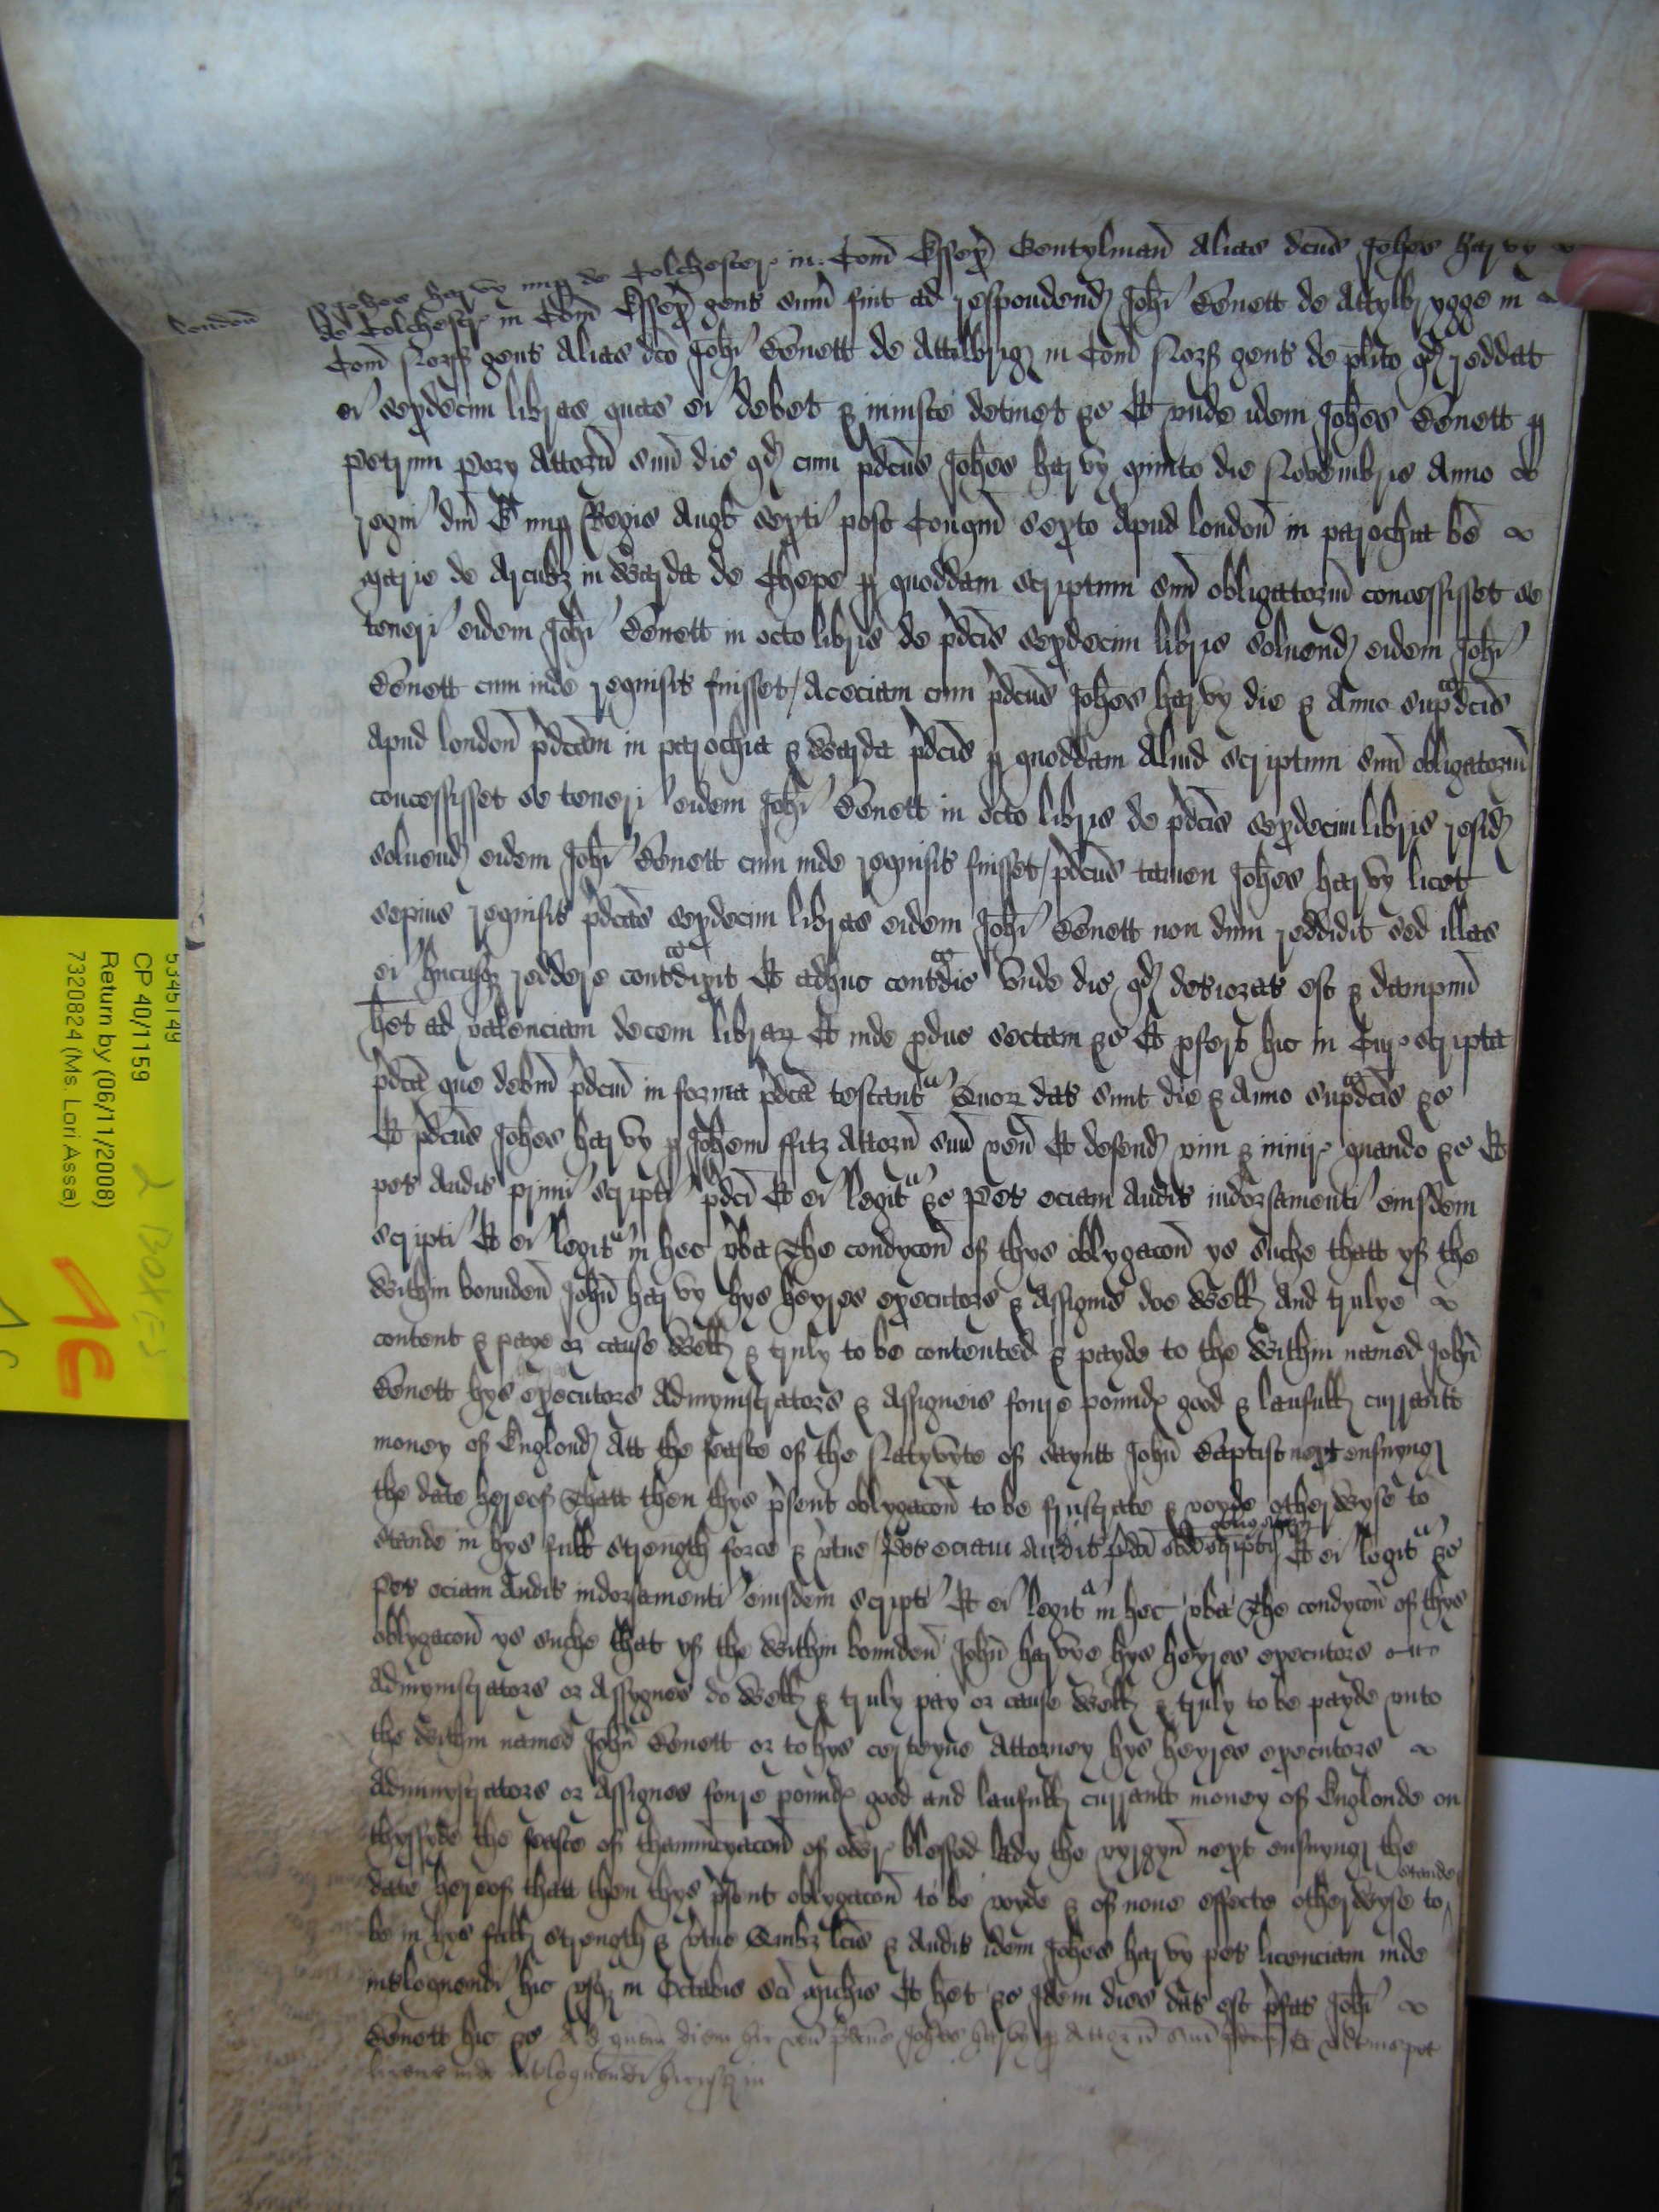 londoñ ss Johes harvy nup de Colchester in Com̃ Essex̃ Gentylmañ alias dc̃us Johes harvy
de Colchestr in Com̃ Essex̃ gent sum̃ fuit ad respondend Johi Benett de Attylbrygge in
Com̃ Norff gent alias dc̃o Johi Benett de Attilbrigg in Com̃ Norff gent de plito qd reddat
ei sexdecim libras quas ei debet & iniuste detinet &c Et unde idem Johes Benett p
Petrum Pery Attorñ suũ dic qd cum p̃dc̃us Johes harvy quinto die Novembris Anno
regni dñi E nup Regis Angl sexti post Conq̃m sexto apud londoñ in parochia be
Marie de Arcubz in Warda de Chepe p quoddam scriptum suũ obligatoriũ concessisset se
teneri eidem Johi Benett in octo libris de p̃dc̃is sexdecim libris solvend eidem Johi
Benett cum inde requisit fuisset / Aceciam cum p̃dc̃us Johes harvy die & Anno sup̃dc̃is
apud londoñ p̃dc̃am in parochia & Warda p̃dc̃is p quoddam aliud scriptum suũ obligatoriũ
concessisset se teneri eidem Johi Benett in octo libris de p̃dc̃is sexdecim libris resid
solvend eidem Johi Benett cum inde requisit fuisset / p̃dc̃us tamen Johes harvy licet
sepius requisit p̃dc̃as sexdecim libras eidem Johi Benett non dum reddidit sed illas
ei hucusq reddere contradixit Et adhuc contradic Unde dic qd deteriorat est & dampnũ
het ad valenciam decem librar Et inde p̃duc sectam &c Et p̃fert hic in Cur scripta
p̃dc̃a que debit̃m p̃dc̃um in forma p̃dc̃a testant Quor dat sunt die & Anno sup̃dc̃is &c
Et p̃dc̃us Johes harvy p Johem ffitz Attorñ suũ veñ Et defend vim & iniur quando &c Et
pet audit primi scripti p̃dc̃i Et ei legit &c Pet eciam audit indorsamenti eiusdem
scripti Et ei legit in hec vba The condyc̃oñ of thys oblygac̃oñ ys suche thatt yf the
within bounden Johñ harvy hys heyres executors & assignis doe well and trulye
content & paye or cause well & truly to be contented & payde to the within named Johñ
Benett hys executors Admynistrators & assigneis foure pounde good & laufull currantt
money of Englond Att the feaste of the Natyvyte of saynt Johñ Baptist next ensuyng
the date hereof Thatt then thys p̃sent oblygac̃oñ to be frustrate & voyde otherwyse to
stande in hys full strength force & vtue / Pet eciam audit p̃dc̃i scripti Et ei legit &c
Pet eciam audit indorsamenti eiusdem scripti Et ei legit in hec vba The condyc̃oñ of thys
oblygac̃oñ ys suche that yf the within bounden Johñ harvye hys heyres executors
Admynistrators or assygnes do well & truly pay or cause well & truly to be payde unto
the within named Johñ Benett or to hys certeyne Attorney hys heyres executors
Admynystrators or assignes foure pounde good and laufull currantt money of Englonde on
thyssyde the feaste of thannucyac̃oñ of owr blessed lady the vyrgyñ next ensuyng the
date hereof thatt then thys p̃sent oblygac̃oñ to be voyde & of none effecte otherwyse to stande
be in hys full strength & vtue Quibz lc̃is & audit idem Johes harvy pet licenciam inde
intloquendi hic usq in Octabis sc̃i Mich̃is Et het &c Idem dies dat est p̃fat Johi
Benett hic &c Ad quem diem hic veñ p̃dc̃us Johes harvy p Attorñ suũ p̃dc̃m Et ultius pet
licenc inde intloquendi hic usq in
5345149
CP 40/1159
Return by (06/11/2008)
7320824 (Ms. Lori Assa)
2 BOXES